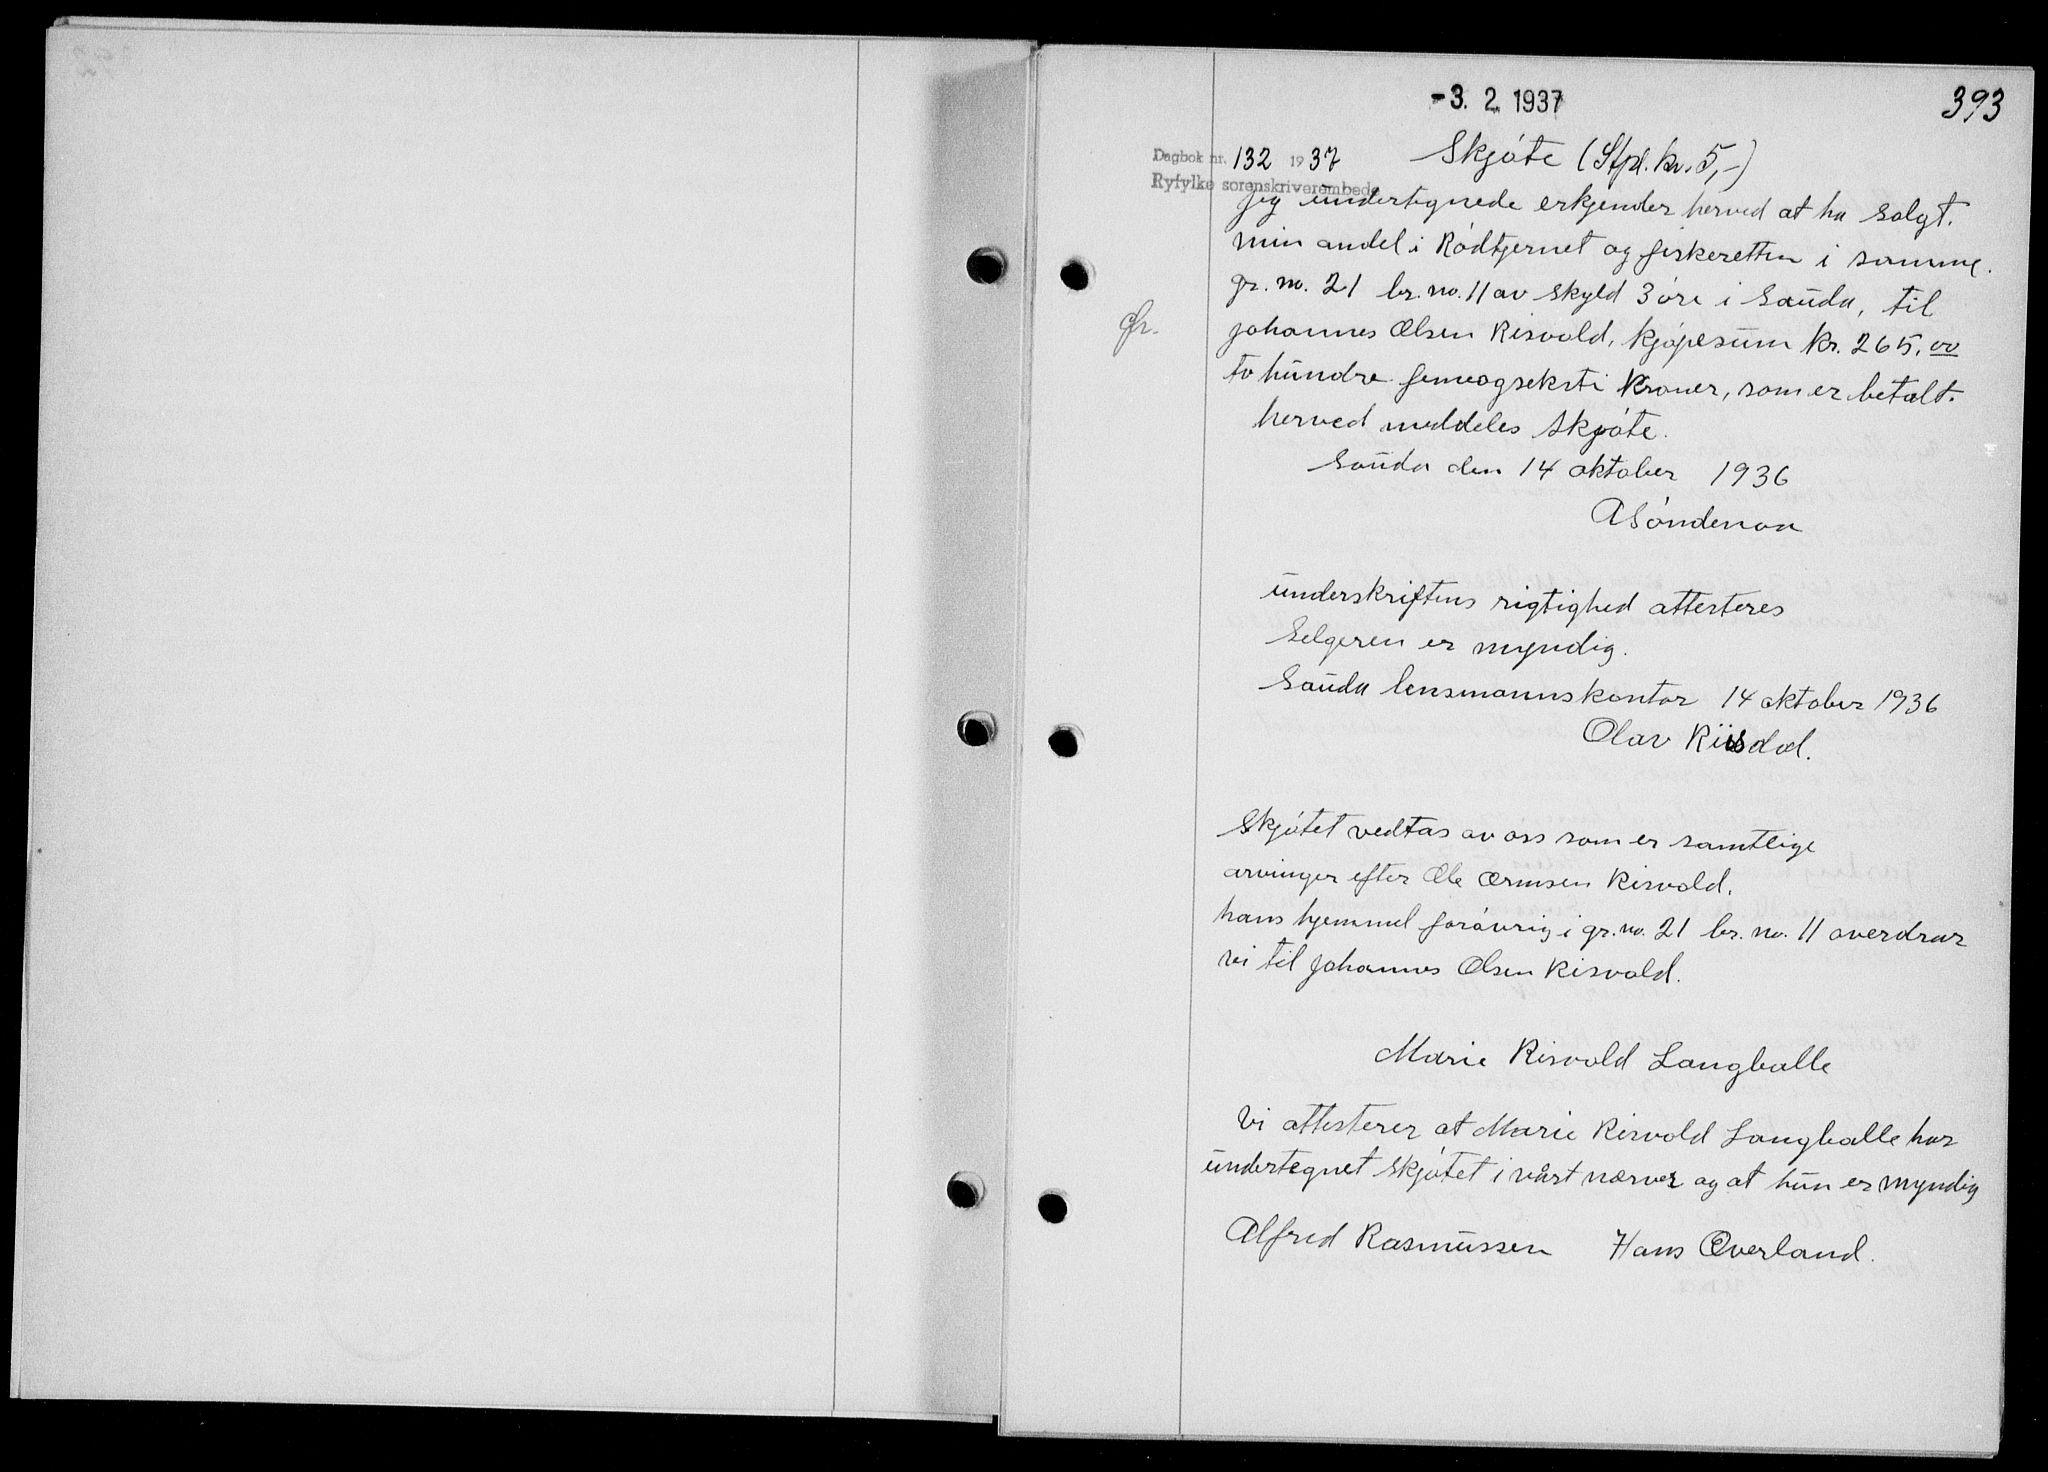 -3. 2. 1937
393
Dagbok nr. 132 1937
Ryfylke sorenskriverembede
Skjøte (Stpl. kr. 5,-)
Jeg undertegnede erkjender herved at ha solgt.
min andel i Rødtjernet og fiskeretten i samme.
gr. no. 21 br. no. 11 av skyld 3 øre i Sauda, til
Johannes Olsen Risvold, kjøpesum kr. 265,00
to hundre femeogseksti kroner, som er betalt.
herved meddeles skjøte.
Sauda den 14 oktober 1936
A Søndenaa
underskriftens rigtighed attesteres
Selgeren er myndig.
Sauda lensmannskontor 14 oktober 1936
Olav Riisdal.
Skjøtet vedtas av oss som er samtlige
arvinger efter Ole Ormsen Risvold.
hans hjemmel forøvrig i gr. no. 21 br. no. 11 overdrar
vi til Johannes Olsen Risvold.
Marie Risvold Langballe
Vi attesterer at Marie Risvold Langballe har
undertegnet skjøtet i vårt nærver og at hun er myndig
Alfred Rasmussen Hans Overland.